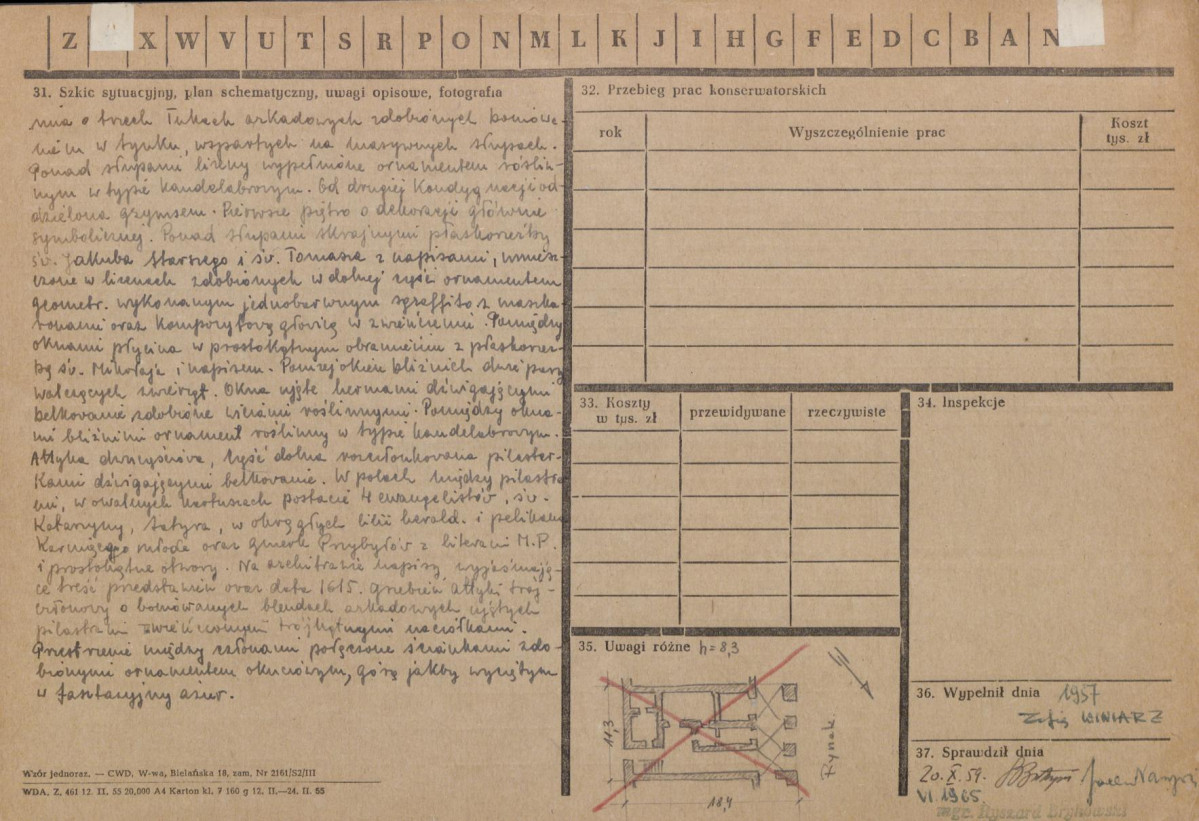 Z X W V U T S R P O N M L K J I H G F E D C B A N
31. Szkic sytuacyjny, plan schematyczny, uwagi opisowe, fotografia
nia o trzech łukach arkadowych zdobionych boniowa-
niem w tynku, wspartych na masywnych słupach.
Ponad słupami lizeny wypełnione ornamentem roślin-
nym w typie kandelabrowym. Od drugiej kondygnacji od-
dzielona gzymsem. Pierwsze piętro o dekoracji głównie
symbolicznej. Ponad słupami skrajnymi płaskorzeźby
św. Jakuba Starszego i św. Tomasza z napisami, umiesz-
czone w lizenach zdobionych w dolnej części ornamentem
geometr. wykonanym jednobarwnym sgraffito z maszka-
ronami oraz kompozytową głowicą w zwieńczeniu. Pomiędzy
oknami płycina w prostokątnym obramieniu z płaskorzeź-
bą św. Mikołaja i napisem. Poniżej okien bliźnich dwie pary
walczących zwierząt. Okna ujęte hermami dźwigającymi
belkowanie zdobione wiciami roślinnymi. Pomiędzy okna-
mi bliźnimi ornament roślinny w typie kandelabrowym.
Attyka dwuczęściowa, część dolna rozczłonkowana pilaster-
kami dźwigającymi belkowanie. W polach między pilastra-
mi, w owalnych kartuszach postacie 4 ewangelistów, św.
Katarzyny, satyra, w okrągłych lilii herald. i pelikana
karmiącego młode oraz gmerk Przybyłów z literami M.P.
i prostokątne otwory. Na architrawie napisy wyjaśniają-
ce treść przedstawień oraz data 1615. Grzebień attyki trój-
członowy o boniowanych blendach arkadowych ujętych
pilastrami zwieńczonymi trójkątnymi naczółkami.
Przestrzenie między członami połączone ściankami zdo-
bionymi ornamentem okuciowym, górą jakby wyciętym
w fantazyjny ażur.
Wzór jednoraz. — CWD, W-wa, Bielańska 18, zam. Nr 2161/S2/III
WDA. Z. 461 12. II. 55 20,000 A4 Karton kl. 7 160 g 12. II.—24. II. 55
32. Przebieg prac konserwatorskich
rok Wyszczególnienie prac Koszt tys. zł
33. Koszty w tys. zł przewidywane rzeczywiste
34. Inspekcje
35. Uwagi różne h = 8,3
11,3
18,4
Rynek
36. Wypełnił dnia 1957
Zofia WINIARZ
37. Sprawdził dnia
20. X. 59.
VI. 1965
mgr. Ryszard Brykowski